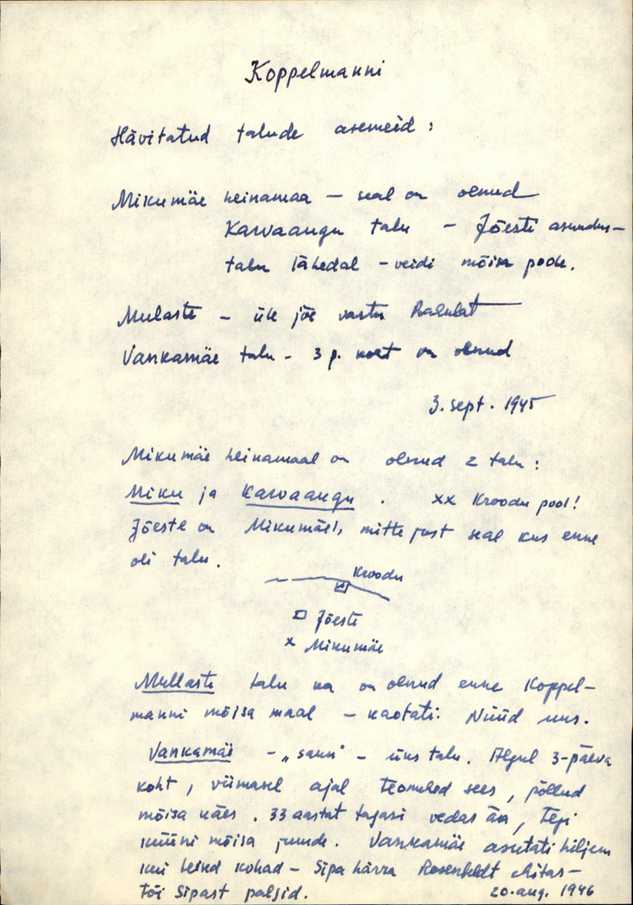 Koppelmanni
Hävitatud talude asemeid:
Mikumäe heinamaa – seal on olnud
Karvaangu talu – Jõesti asundus-
talu lähedal – veidi mõisa poole.
Mulaste – üle jõe vastu
Vankamäe talu – 3 p. koht on olnud
3. sept. 1945
Mikumäe heinamaal on olnud 2 talu:
Miku ja Karvaangu. xx Kroodu pool!
Jõeste on Mikumäel, mitte just seal kus enne
oli talu.
Kroodu
Jõeste
x Mikumäe
Mullaste talu ka on olnud enne Koppel-
manni mõisa maal – kaotati. Nüüd uus.
Vankamäe – „saun" – üks talu. Algul 3-päeva
koht, viimasel ajal teomehed sees, põllud
mõisa käes. 33 aastat tagasi vedas ära, tegi
küüni mõisa juurde. Vankamäe asutati hiljem
kui teised kohad – Sipa härra Rosenfeldt ehitas –
tõi Sipast palgid. 20. aug. 1946